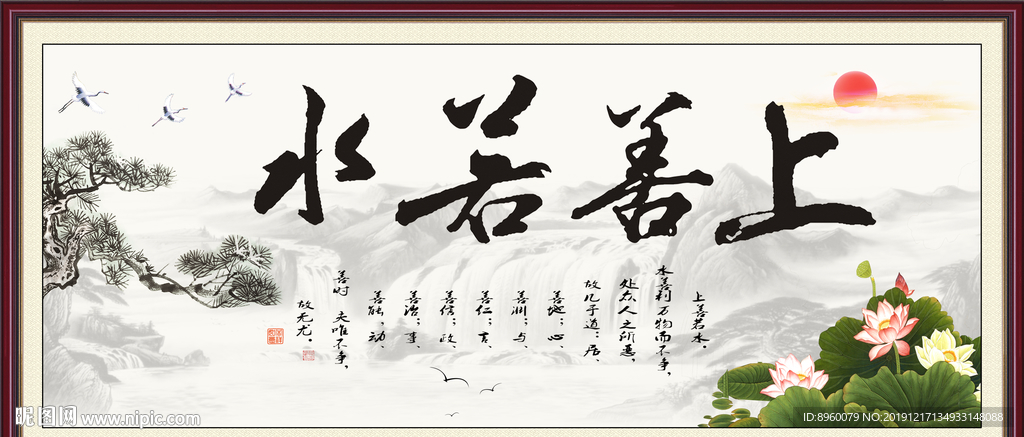 上善若水
上善若水。
水善利万物而不争，
处众人之所恶，
故几于道；居，
善地；心，
善渊；与，
善仁；言，
善信；政，
善治；事，
善能；动，
善时 夫唯不争，
故无尤。
昵图网 www.nipic.com
ID:8960079 NO:20191217134933148088